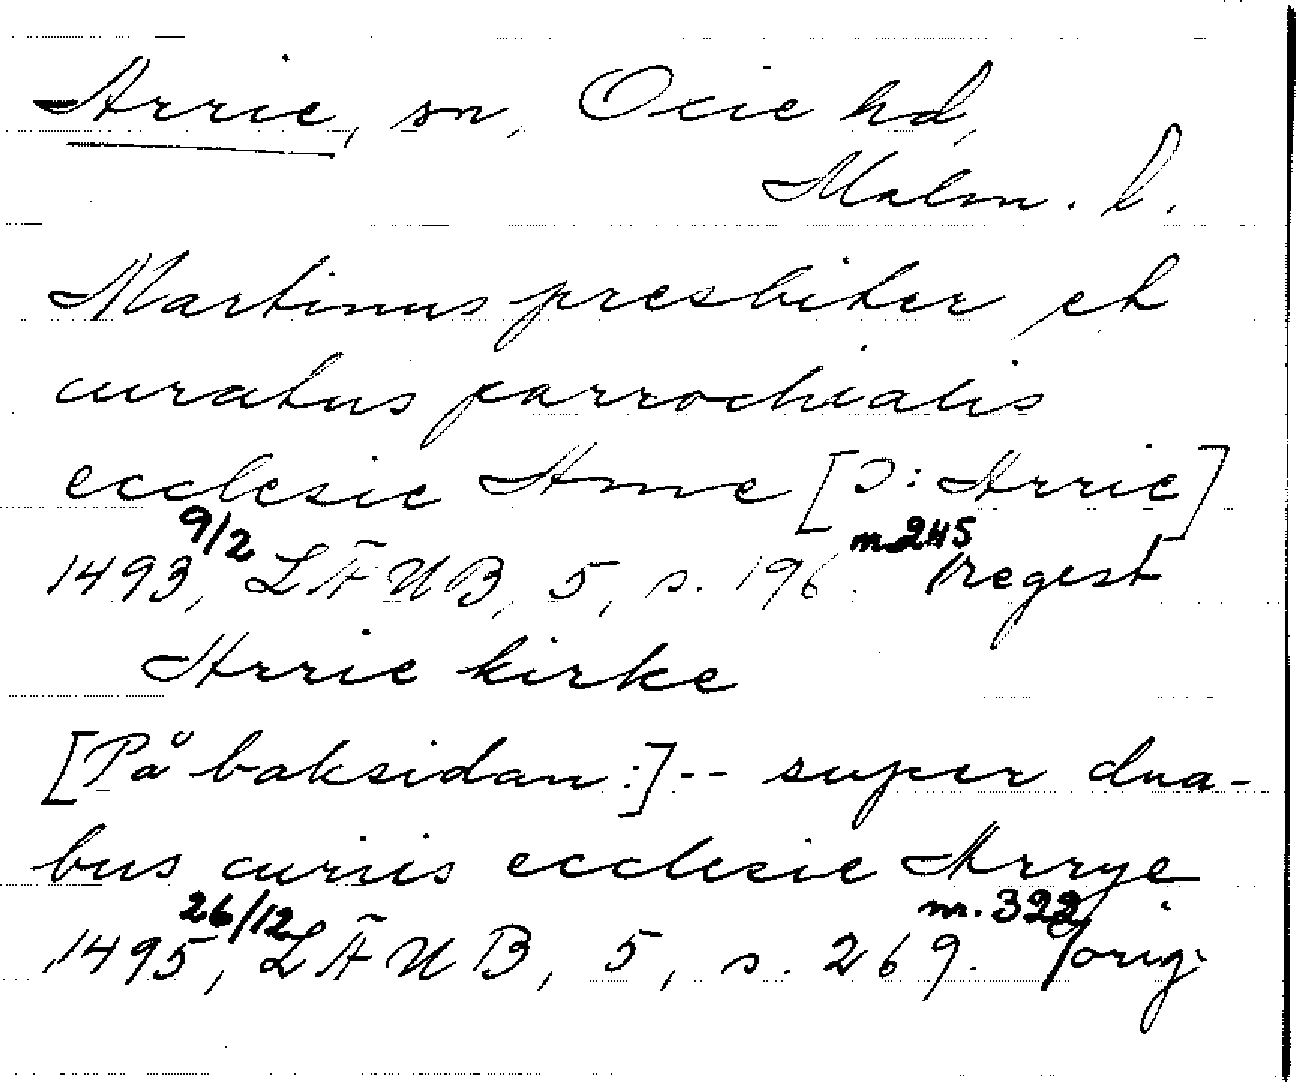 Arrie, sn, Oxie hd,
Malm. l.
Martinus presbiter et
curatus parrochialis
ecclesie Arme [Ɔ: Arrie]
1493, 9/2 LÄUB, 5, s. 196. nr 245 /regest
Arrie kirke
[På baksidan:] -- super dua-
bus curiis ecclesie Arrye
1495, 26/12 LÄUB, 5, s. 269. nr. 322 /orig.